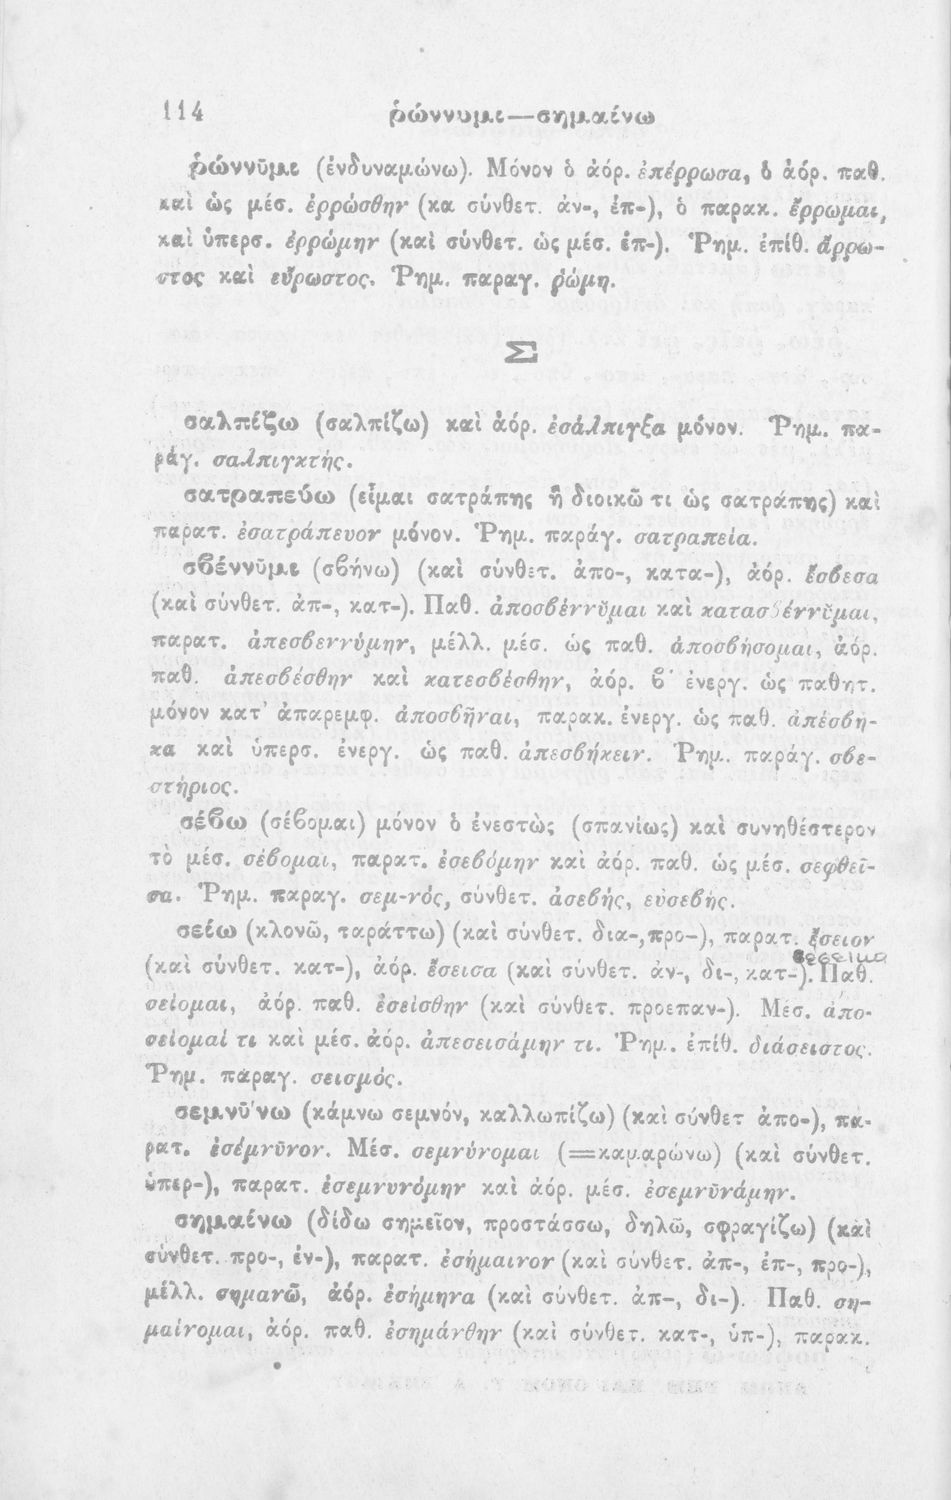 114
ῥώννυμι—σημαίνω
ῥώννῡμι (ἐνδυναμώνω). Μόνον ὁ ἀόρ. ἐπέρρωσα, ὁ ἀόρ. παθ.
καὶ ὡς μέσ. ἐρρώσθην (κα σύνθετ. ἀν-, ἐπ-), ὁ παρακ. ἔρρωμαι,
καὶ ὑπερσ. ἐρρώμην (καὶ σύνθετ. ὡς μέσ. ἐπ-). Ῥημ. ἐπίθ. ἄρρω-
στος καὶ εὔρωστος. Ῥημ. παραγ. ῥώμη.
Σ
σαλπίζω (σαλπίζω) καὶ ἀόρ. ἐσάλπιγξα μόνον. Ῥημ. πα-
ράγ. σαλπιγκτής.
σατραπεύω (εἶμαι σατράπης ἢ διοικῶ τι ὡς σατράπης) καὶ
παρατ. ἐσατράπευον μόνον. Ῥημ. παράγ. σατραπεία.
σβέννῡμι (σβήνω) (καὶ σύνθετ. ἀπο-, κατα-), ἀόρ. ἔσβεσα
(καὶ σύνθετ. ἀπ-, κατ-). Παθ. ἀποσβέννῠμαι καὶ κατασβέννῠμαι,
παρατ. ἀπεσβεννύμην, μέλλ. μέσ. ὡς παθ. ἀποσβήσομαι, ἀόρ.
παθ. ἀπεσβέσθην καὶ κατεσβέσθην, ἀόρ. β΄ ἐνεργ. ὡς παθητ.
μόνον κατ' ἀπαρεμφ. ἀποσβῆναι, παρακ. ἐνεργ. ὡς παθ. ἀπέσβη-
κα καὶ ὑπερσ. ἐνεργ. ὡς παθ. ἀπεσβήκειν. Ῥημ. παράγ. σβε-
στήριος.
σέβω (σέβομαι) μόνον ὁ ἐνεστὼς (σπανίως) καὶ συνηθέστερον
τὸ μέσ. σέβομαι, παρατ. ἐσεβόμην καὶ ἀόρ. παθ. ὡς μέσ. σεφθεῖ-
σα. Ῥημ. παραγ. σεμ-νός, σύνθετ. ἀσεβής, εὐσεβής.
σείω (κλονῶ, ταράττω) (καὶ σύνθετ. δια-, προ-), παρατ. ἔσειον
(καὶ σύνθετ. κατ-), ἀόρ. ἔσεισα (καὶ σύνθετ. ἀν-, δι-, κατ-). Παθ.
σείομαι, ἀόρ. παθ. ἐσείσθην (καὶ σύνθετ. προεπαν-). Μέσ. ἀπο-
σείομαί τι καὶ μέσ. ἀόρ. ἀπεσεισάμην τι. Ῥημ. ἐπίθ. διάσειστος.
Ῥημ. παραγ. σεισμός.
σεμνῡ́νω (κάμνω σεμνόν, καλλωπίζω) (καὶ σύνθετ ἀπο-), πα-
ρατ. ἐσέμνῡνον. Μέσ. σεμνύνομαι (=καμαρώνω) (καὶ σύνθετ.
ὑπερ-), παρατ. ἐσεμνυνόμην καὶ ἀόρ. μέσ. ἐσεμνῡνάμην.
σημαίνω (δίδω σημεῖον, προστάσσω, δηλῶ, σφραγίζω) (καὶ
σύνθετ. προ-, ἐν-), παρατ. ἐσήμαινον (καὶ σύνθετ. ἀπ-, ἐπ-, προ-),
μέλλ. σημανῶ, ἀόρ. ἐσήμηνα (καὶ σύνθετ. ἀπ-, δι-). Παθ. ση-
μαίνομαι, ἀόρ. παθ. ἐσημάνθην (καὶ σύνθετ. κατ-, ὑπ-), παρακ.